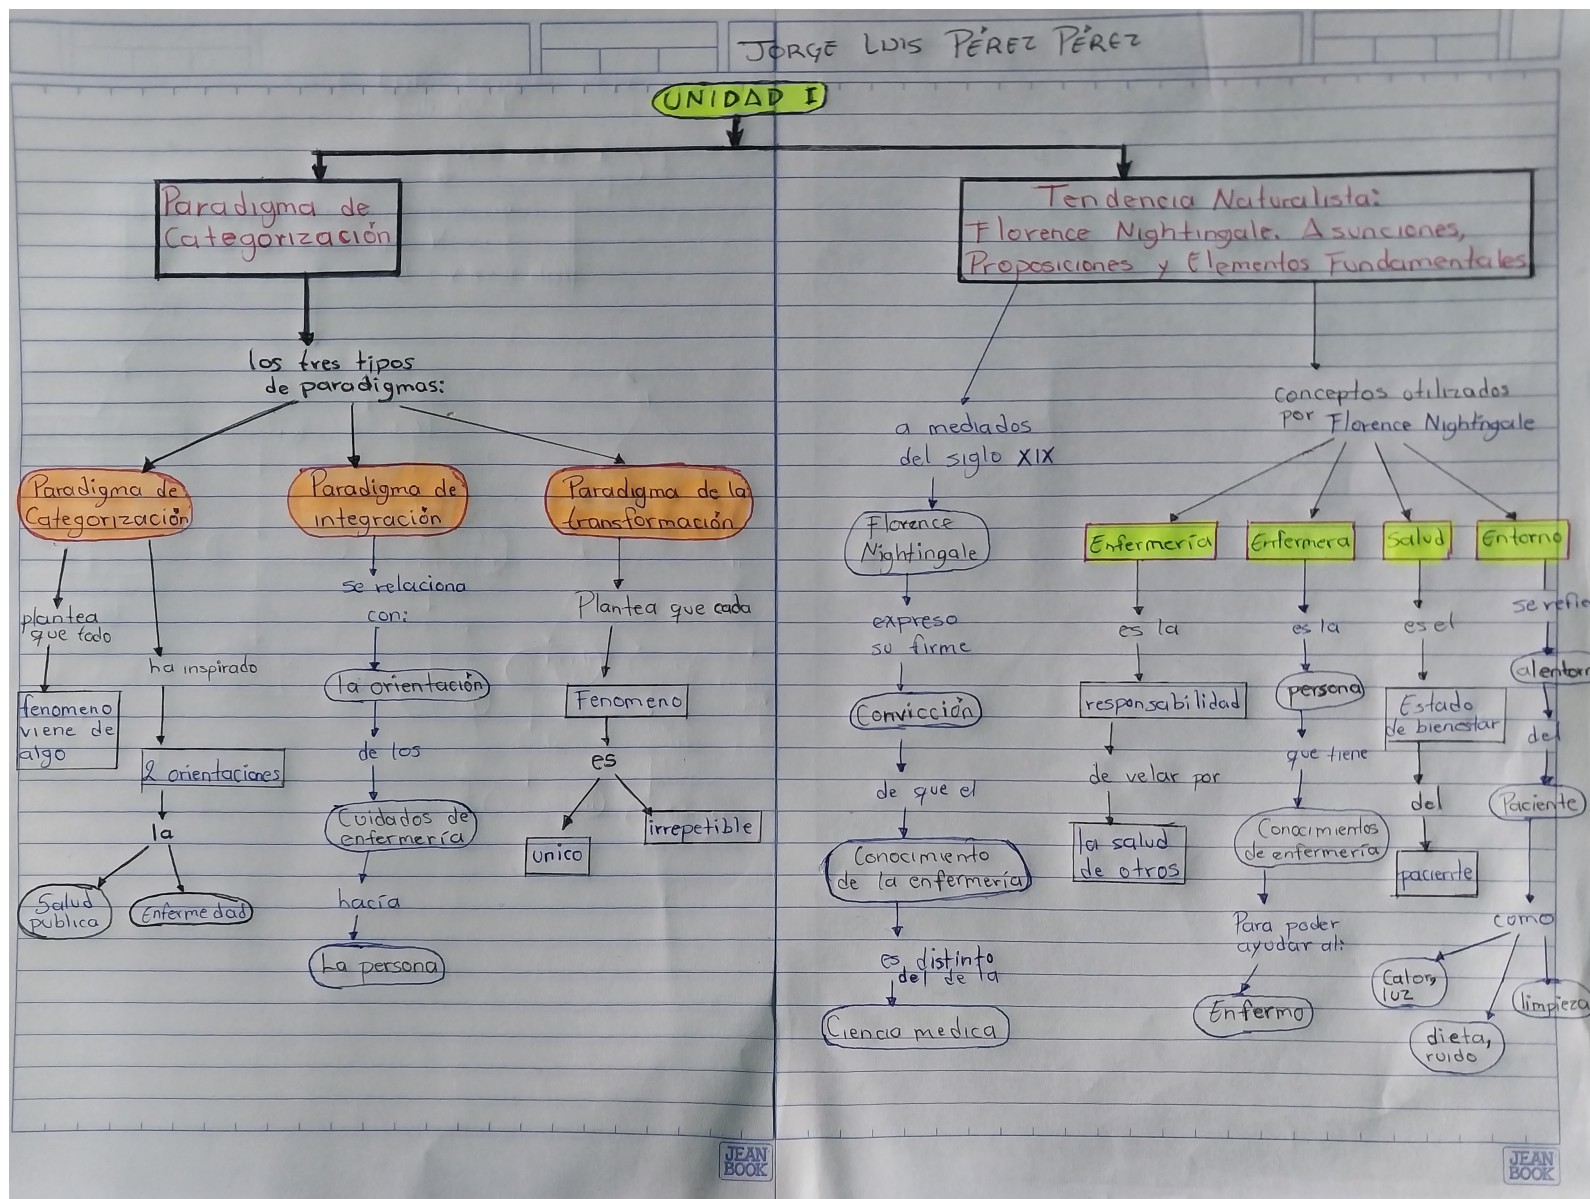 JORGE LUIS PÉREZ PÉREZ
UNIDAD I
Paradigma de
Categorización
los tres tipos
de paradigmas:
Paradigma de
Categorización
plantea
que todo
fenomeno
viene de
algo
ha inspirado
2 orientaciones
la
Salud
publica
Enfermedad
Paradigma de
integración
se relaciona
con:
la orientación
de los
Cuidados de
enfermería
hacía
La persona
Paradigma de la
transformación
Plantea que cada
Fenomeno
es
unico
irrepetible
Tendencia Naturalista:
Florence Nightingale. Asunciones,
Proposiciones y Elementos Fundamentales
a mediados
del siglo XIX
Florence
Nightingale
expreso
su firme
Convicción
de que el
Conocimiento
de la enfermería
es distinto
del de la
Ciencia medica
conceptos utilizados
por Florence Nightingale
Enfermería
es la
responsabilidad
de velar por
la salud
de otros
Enfermera
es la
persona
que tiene
Conocimientos
de enfermería
Para poder
ayudar al:
Enfermo
Salud
es el
Estado
de bienestar
del
paciente
Entorno
se refie
al entorn
del
Paciente
como
Calor,
luz
dieta,
ruido
limpieza
JEAN
BOOK
JEAN
BOOK